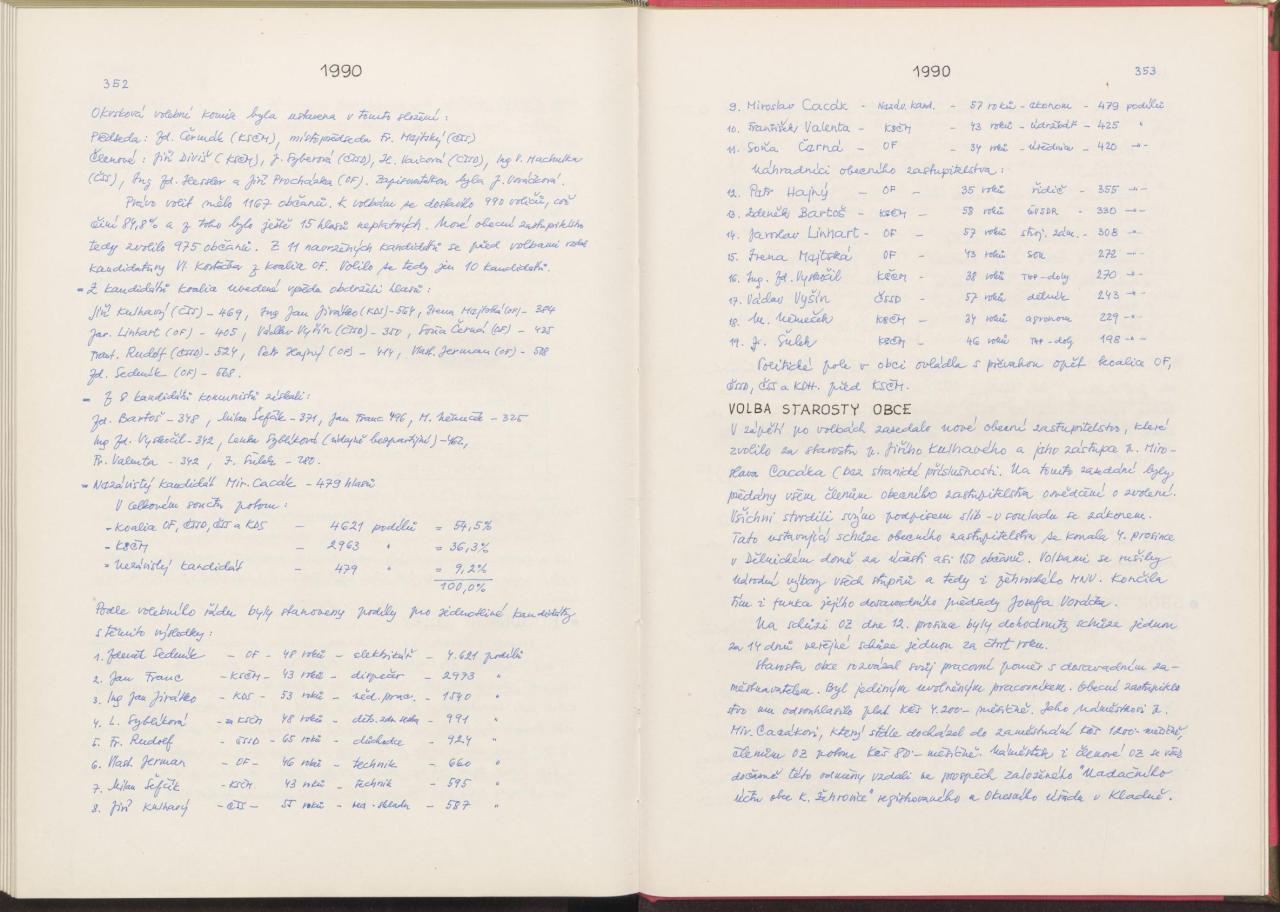 352
1990
Okrsková volební komise byla ustavena v tomto složení:
Předseda: Zd. Čermák (KSČM), místopředseda Fr. Majtský (ČSS)
Členové: Jiří Diviš (KSČM), J. Fyberová (ČSSD), Ing P. Machulka
(ČSS), Ing Zd. Hessler a Jiří Procházka (OF). Zapisovatelkou byla J. Voráčková.
Právo volit mělo 1167 občanů. K volbám se dostavilo 990 voličů, což
činí 84,8% a z toho bylo ještě 15 hlasů neplatných. Nové obecní zastupitelstvo
tedy zvolilo 975 občanů. Z 11 navržených kandidátů se před volbami vzdal
kandidatury Vl. z koalice OF. Volilo se tedy jen 10 kandidátů.
- Z kandidátů koalice uvedené vpředu obdrželi hlasů:
Jiří Kulhavý (ČSS) - 469, Ing Jan Jirátko (KDS) - 564, Irena Majtská (OF) - 384
Jar. Linhart (OF) - 405, Václav Vyšín (ČSSD) - 350, Soňa Černá (OF) - 435
Frant. Rudolf (ČSSD) - 524, Petr Hajný (OF) - 414, Vlast. Jerman (OF) - 508
Zd. Sedmík (OF) - 568.
- Z 8 kandidátů komunistů získali:
Zd. Bartoš - 348, Milan Šefčík - 371, Jan Franc 496, M. Němeček - 325
Ing Zd. Vyskočil - 342, Lenka Syblíková (údajně bezpartijní) - 462,
Fr. Valenta - 342, J. Šulek - 280.
- Nezávislý kandidát Mir. Cacák - 479 hlasů
V celkovém součtu potom:
- koalice OF, ČSSD, ČSS a KDS - 4621 podílů = 54,5%
- KSČM - 2963 " = 36,3%
- Nezávislý kandidát - 479 " = 9,2%
100,0%
Podle volebního řádu byly stanoveny podíly pro jednotlivé kandidáty
s těmito výsledky:
1. Zdeněk Sedmík - OF - 48 roků - elektrikář - 4.621 podílů
2. Jan Franc - KSČM - 43 roků - dispečer - 2973 "
3. Ing Jan Jirátko - KDS - 53 roků - věd. prac. - 1540 "
4. L. Syblíková - za KSČM 48 roků - dět. - 991 "
5. Fr. Rudolf - ČSSD - 65 roků - důchodce - 924 "
6. Vlast. Jerman - OF - 46 roků - technik - 660 "
7. Milan Šefčík - KSČM 43 roků - technik - 595 "
8. Jiří Kulhavý - ČSS - 55 roků - ved. skladu - 587 "
1990
353
9. Miroslav Cacák - Nezáv. kand. - 57 roků - ekonom - 479 podílů
10. František Valenta - KSČM - 43 roků - údržbář - 425 "
11. Soňa Černá - OF - 34 roků - úřednice - 420 -"-
Náhradníci obecního zastupitelstva:
12. Petr Hajný - OF - 35 roků řidič - 355 -"-
13. Zdeněk Bartoš - KSČM - 58 roků - 330 -"-
14. Jaroslav Linhart - OF - 57 roků stroj. zám. - 308 -"-
15. Irena Majtská OF - 43 roků SOU - 272 -"-
16. Ing. Zd. Vyskočil KSČM - 38 roků THP-doly 270 -"-
17. Václav Vyšín ČSSD - 57 roků dělník 243 -"-
18. M. Němeček KSČM - 34 roků agronom 229 -"-
19. J. Šulek KSČM - 46 roků THP-doly 198 -"-
Politické pole v obci ovládla s převahou opět koalice OF,
ČSSD, ČSS a KDH. před KSČM.
VOLBA STAROSTY OBCE
V zápětí po volbách zasedalo nové obecní zastupitelstvo, které
zvolilo za starostu p. Jiřího Kulhavého a jeho zástupce p. Miro-
slava Cacáka (bez stranické příslušnosti. Na tomto zasedání byly
předány všem členům obecního zastupitelstva osvědčení o zvolení.
Všichni stvrdili svým podpisem slib - v souladu se zákonem.
Tato ustavující schůze obecního zastupitelstva se konala 4. prosince
v Dělnickém domě za účasti asi 150 občanů. Volbami se rušily
národní výbory všech stupňů a tedy i žehrovského MNV. Končila
tím i funkce jejího dosavadního předsedy Josefa Voráčka.
Na schůzi OZ dne 12. prosince byly dohodnuty schůze jednou
za 14 dnů veřejné schůze jednou za čtvrt roku.
Starosta obce rozvázal svůj pracovní poměr s dosavadním za-
městnavatelem. Byl jediným uvolněným pracovníkem. Obecní zastupitel-
stvo mu odsouhlasilo plat Kčs 4.200.- měsíčně. Jeho náměstkovi p.
Mir. Cacákovi, který stále docházel do zaměstnání Kčs 1200.- měsíčně,
členům OZ potom Kčs 80.- měsíčně. Náměstek i členové OZ se
dočasně této odměny vzdali ve prospěch založeného "Nadačního
účtu obce K. Žehrovice" registrovaného u Okresního úřadu v Kladně.